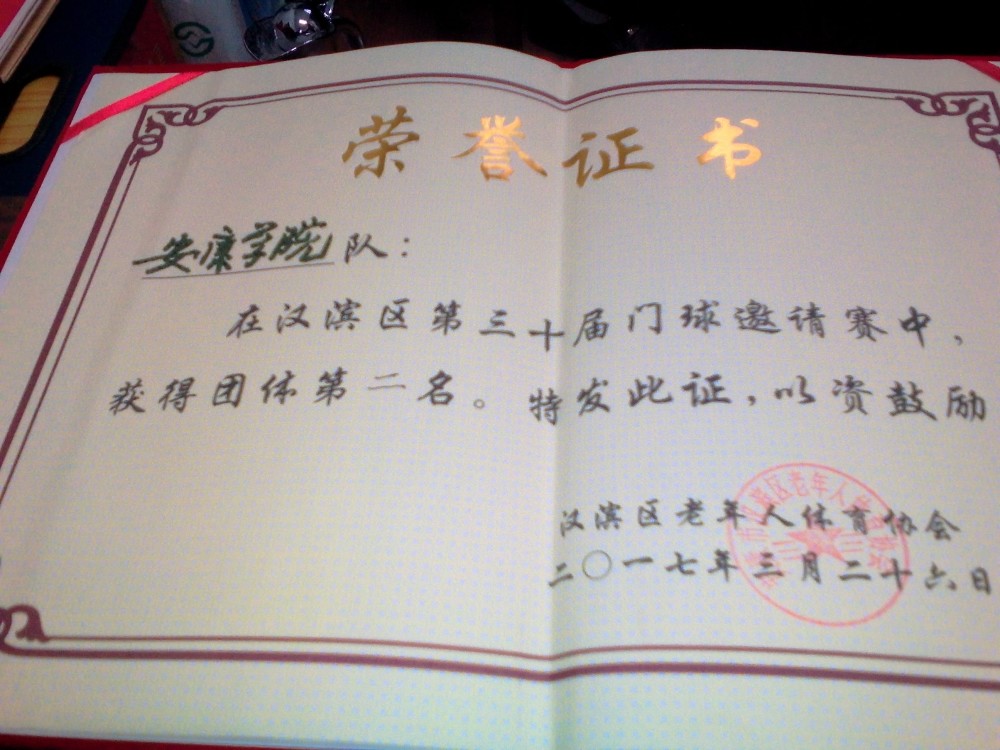 荣誉证书
安康学院队：
在汉滨区第三十届门球邀请赛中，
获得团体第二名。特发此证，以资鼓励
汉滨区老年人体育协会
二〇一七年三月二十六日